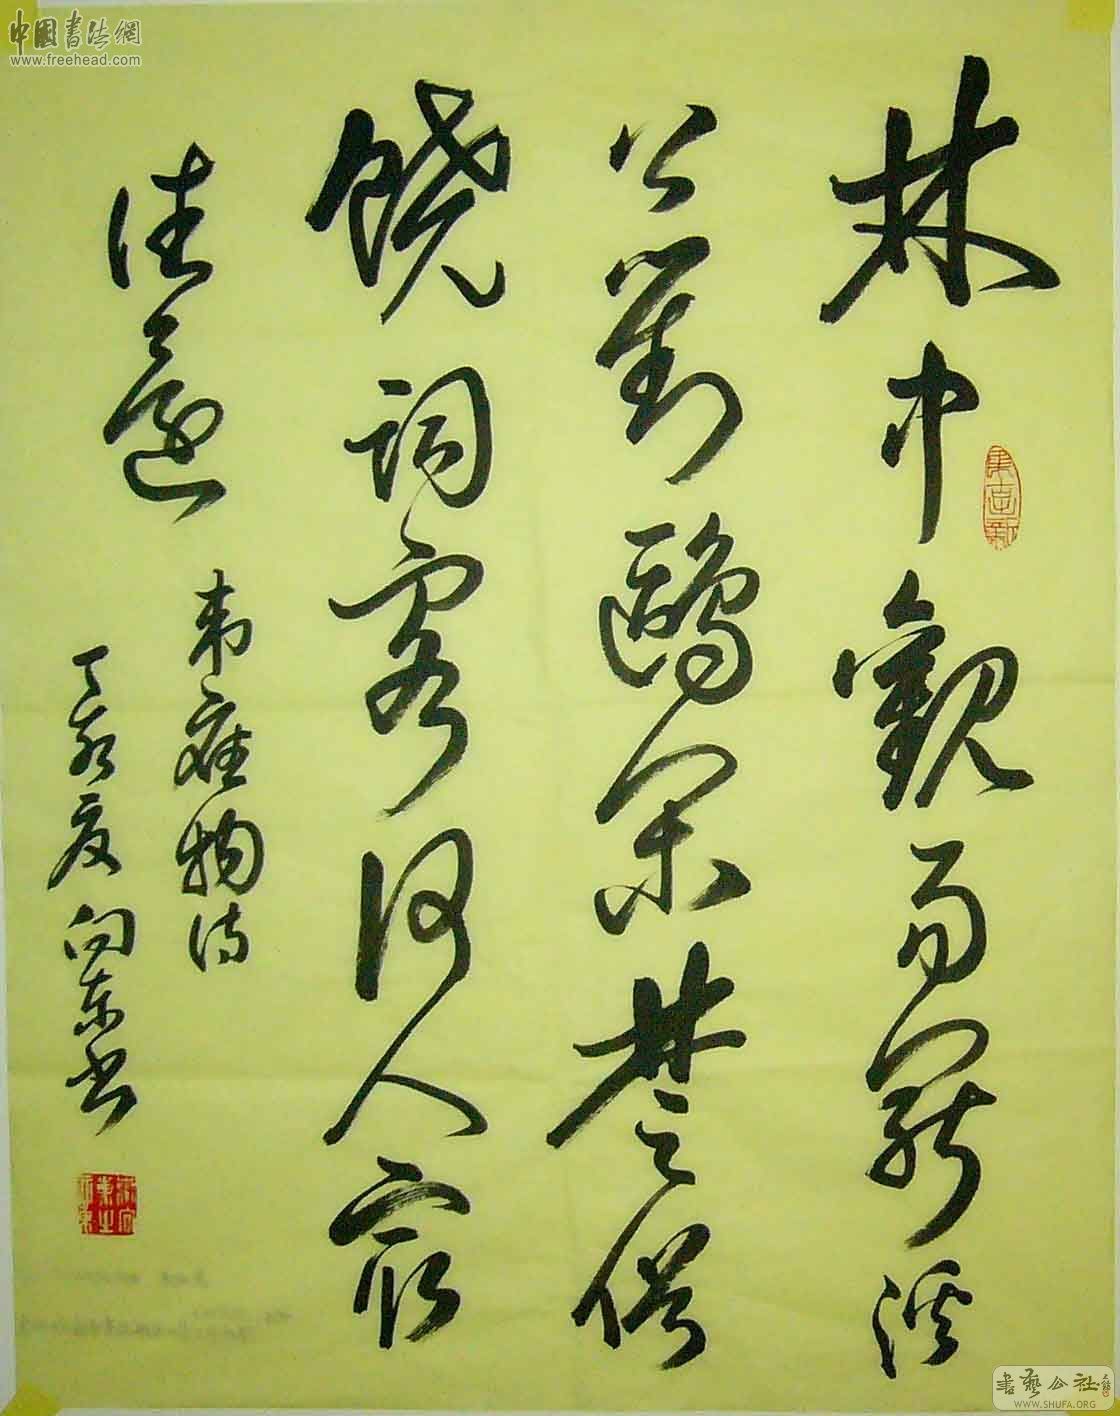 中國書法網
www.freehead.com
林中觀易罷溪
上對鷗閑楚俗
饒詞客何人最
往還
韋應物詩
丁亥夏向東书
書藝公社
WWW.SHUFA.ORG